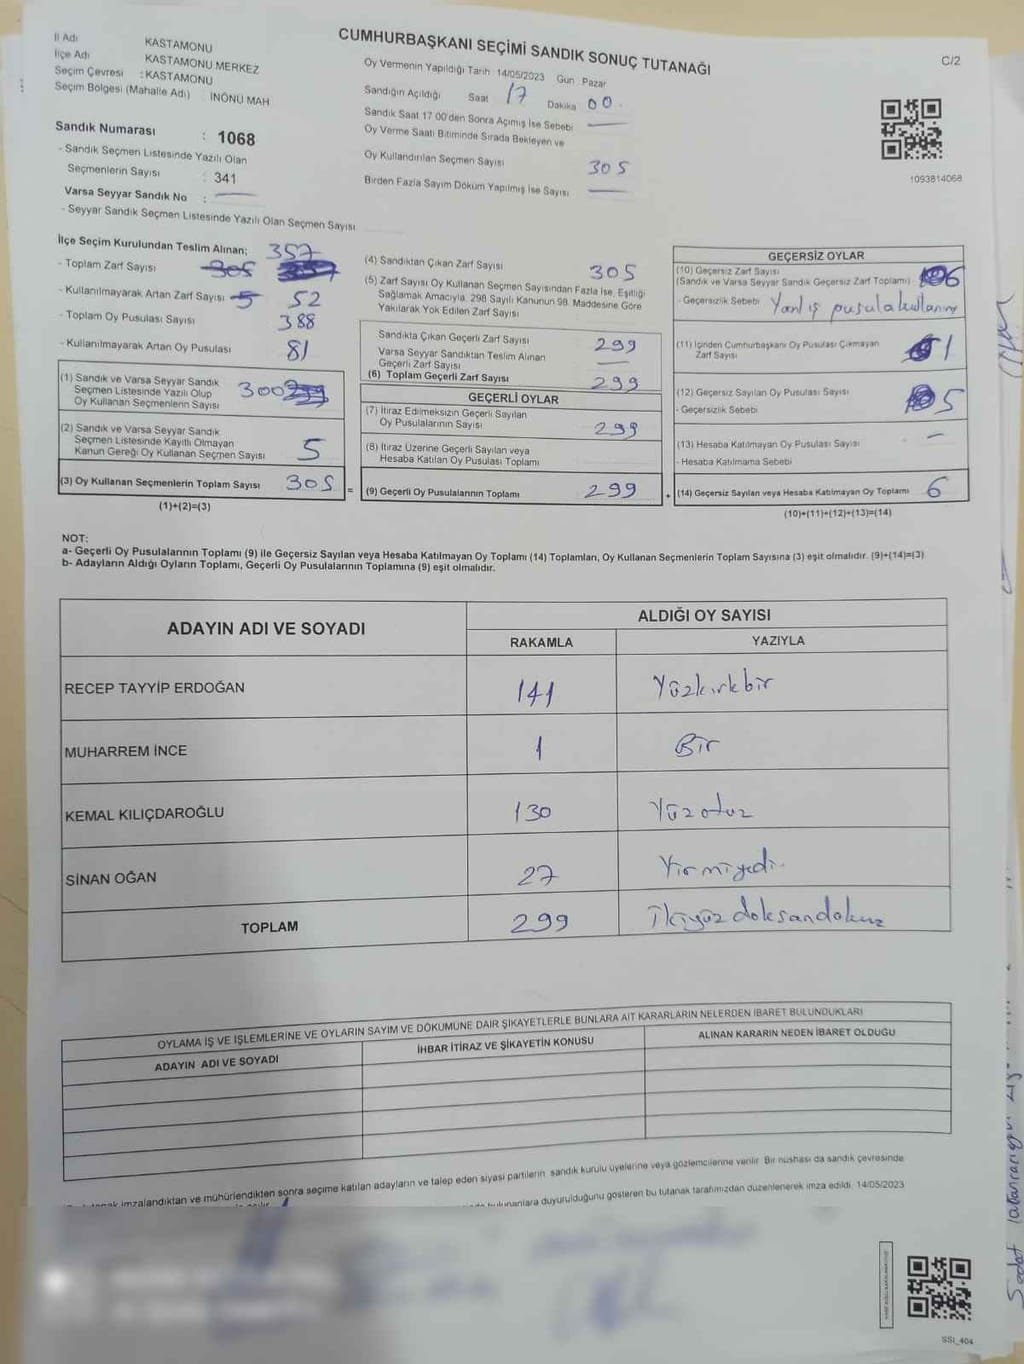 CUMHURBAŞKANI SEÇİMİ SANDIK SONUÇ TUTANAĞI
C/2
İl Adı KASTAMONU
İlçe Adı KASTAMONU MERKEZ
Seçim Çevresi : KASTAMONU
Seçim Bölgesi (Mahalle Adı) : İNÖNÜ MAH
Sandık Numarası : 1068
- Sandık Seçmen Listesinde Yazılı Olan
Seçmenlerin Sayısı : 341
Varsa Seyyar Sandık No :
- Seyyar Sandık Seçmen Listesinde Yazılı Olan Seçmen Sayısı
Oy Vermenin Yapıldığı Tarih 14/05/2023 Gün Pazar
Sandığın Açıldığı Saat 17 Dakika 00
Sandık Saat 17 00'den Sonra Açımış İse Sebebi
Oy Verme Saati Bitiminde Sırada Bekleyen ve
Oy Kullandırılan Seçmen Sayısı 305
Birden Fazla Sayım Döküm Yapılmış İse Sayısı
1093814068
İlçe Seçim Kurulundan Teslim Alınan; 357
- Toplam Zarf Sayısı 305 357
- Kullanılmayarak Artan Zarf Sayısı 5 52
- Toplam Oy Pusulası Sayısı 388
- Kullanılmayarak Artan Oy Pusulası 81
(1) Sandık ve Varsa Seyyar Sandık
Seçmen Listesinde Yazılı Olup
Oy Kullanan Seçmenlerin Sayısı 300
(2) Sandık ve Varsa Seyyar Sandık
Seçmen Listesinde Kayıtlı Olmayan
Kanun Gereği Oy Kullanan Seçmen Sayısı 5
(3) Oy Kullanan Seçmenlerin Toplam Sayısı 305 =
(1)+(2)=(3)
(4) Sandıktan Çıkan Zarf Sayısı 305
(5) Zarf Sayısı Oy Kullanan Seçmen Sayısından Fazla İse, Eşitliği
Sağlamak Amacıyla, 298 Sayılı Kanunun 98. Maddesine Göre
Yakılarak Yok Edilen Zarf Sayısı
Sandıkta Çıkan Geçerli Zarf Sayısı 299
Varsa Seyyar Sandıktan Teslim Alınan
Geçerli Zarf Sayısı
(6) Toplam Geçerli Zarf Sayısı 299
GEÇERLİ OYLAR
(7) İtiraz Edilmeksizin Geçerli Sayılan
Oy Pusulalarının Sayısı 299
(8) İtiraz Üzerine Geçerli Sayılan veya
Hesaba Katılan Oy Pusulası Toplamı
(9) Geçerli Oy Pusulalarının Toplamı 299 +
GEÇERSİZ OYLAR
(10) Geçersiz Zarf Sayısı
(Sandık ve Varsa Seyyar Sandık Geçersiz Zarf Toplamı)
- Geçersizlik Sebebi Yanlış pusula kullanımı
(11) İçinden Cumhurbaşkanı Oy Pusulası Çıkmayan
Zarf Sayısı 1
(12) Geçersiz Sayılan Oy Pusulası Sayısı 5
- Geçersizlik Sebebi
(13) Hesaba Katılmayan Oy Pusulası Sayısı –
- Hesaba Katılmama Sebebi
(14) Geçersiz Sayılan veya Hesaba Katılmayan Oy Toplamı 6
(10)+(11)+(12)+(13)=(14)
NOT:
a- Geçerli Oy Pusulalarının Toplamı (9) ile Geçersiz Sayılan veya Hesaba Katılmayan Oy Toplamı (14) Toplamları, Oy Kullanan Seçmenlerin Toplam Sayısına (3) eşit olmalıdır. (9)+(14)=(3)
b- Adayların Aldığı Oyların Toplamı, Geçerli Oy Pusulalarının Toplamına (9) eşit olmalıdır.
ADAYIN ADI VE SOYADI ALDIĞI OY SAYISI
RAKAMLA YAZIYLA
RECEP TAYYİP ERDOĞAN 141 Yüzkırkbir
MUHARREM İNCE 1 Bir
KEMAL KILIÇDAROĞLU 130 Yüzotuz
SİNAN OĞAN 27 Yirmiyedi.
TOPLAM 299 İkiyüzdoksandokuz
OYLAMA İŞ VE İŞLEMLERİNE VE OYLARIN SAYIM VE DÖKÜMÜNE DAİR ŞİKAYETLERLE BUNLARA AİT KARARLARIN NELERDEN İBARET BULUNDUKLARI
ADAYIN ADI VE SOYADI İHBAR İTİRAZ VE ŞİKAYETİN KONUSU ALINAN KARARIN NEDEN İBARET OLDUĞU
imzalandıktan ve mühürlendikten sonra seçime katılan adayların ve talep eden siyasi partilerin sandık kurulu üyelerine veya gözlemcilerine verilir. Bir nüshası da sandık çevresinde
bulunanlara duyurulduğunu gösteren bu tutanak tarafımızdan düzenlenerek imza edildi. 14/05/2023
SSI_404